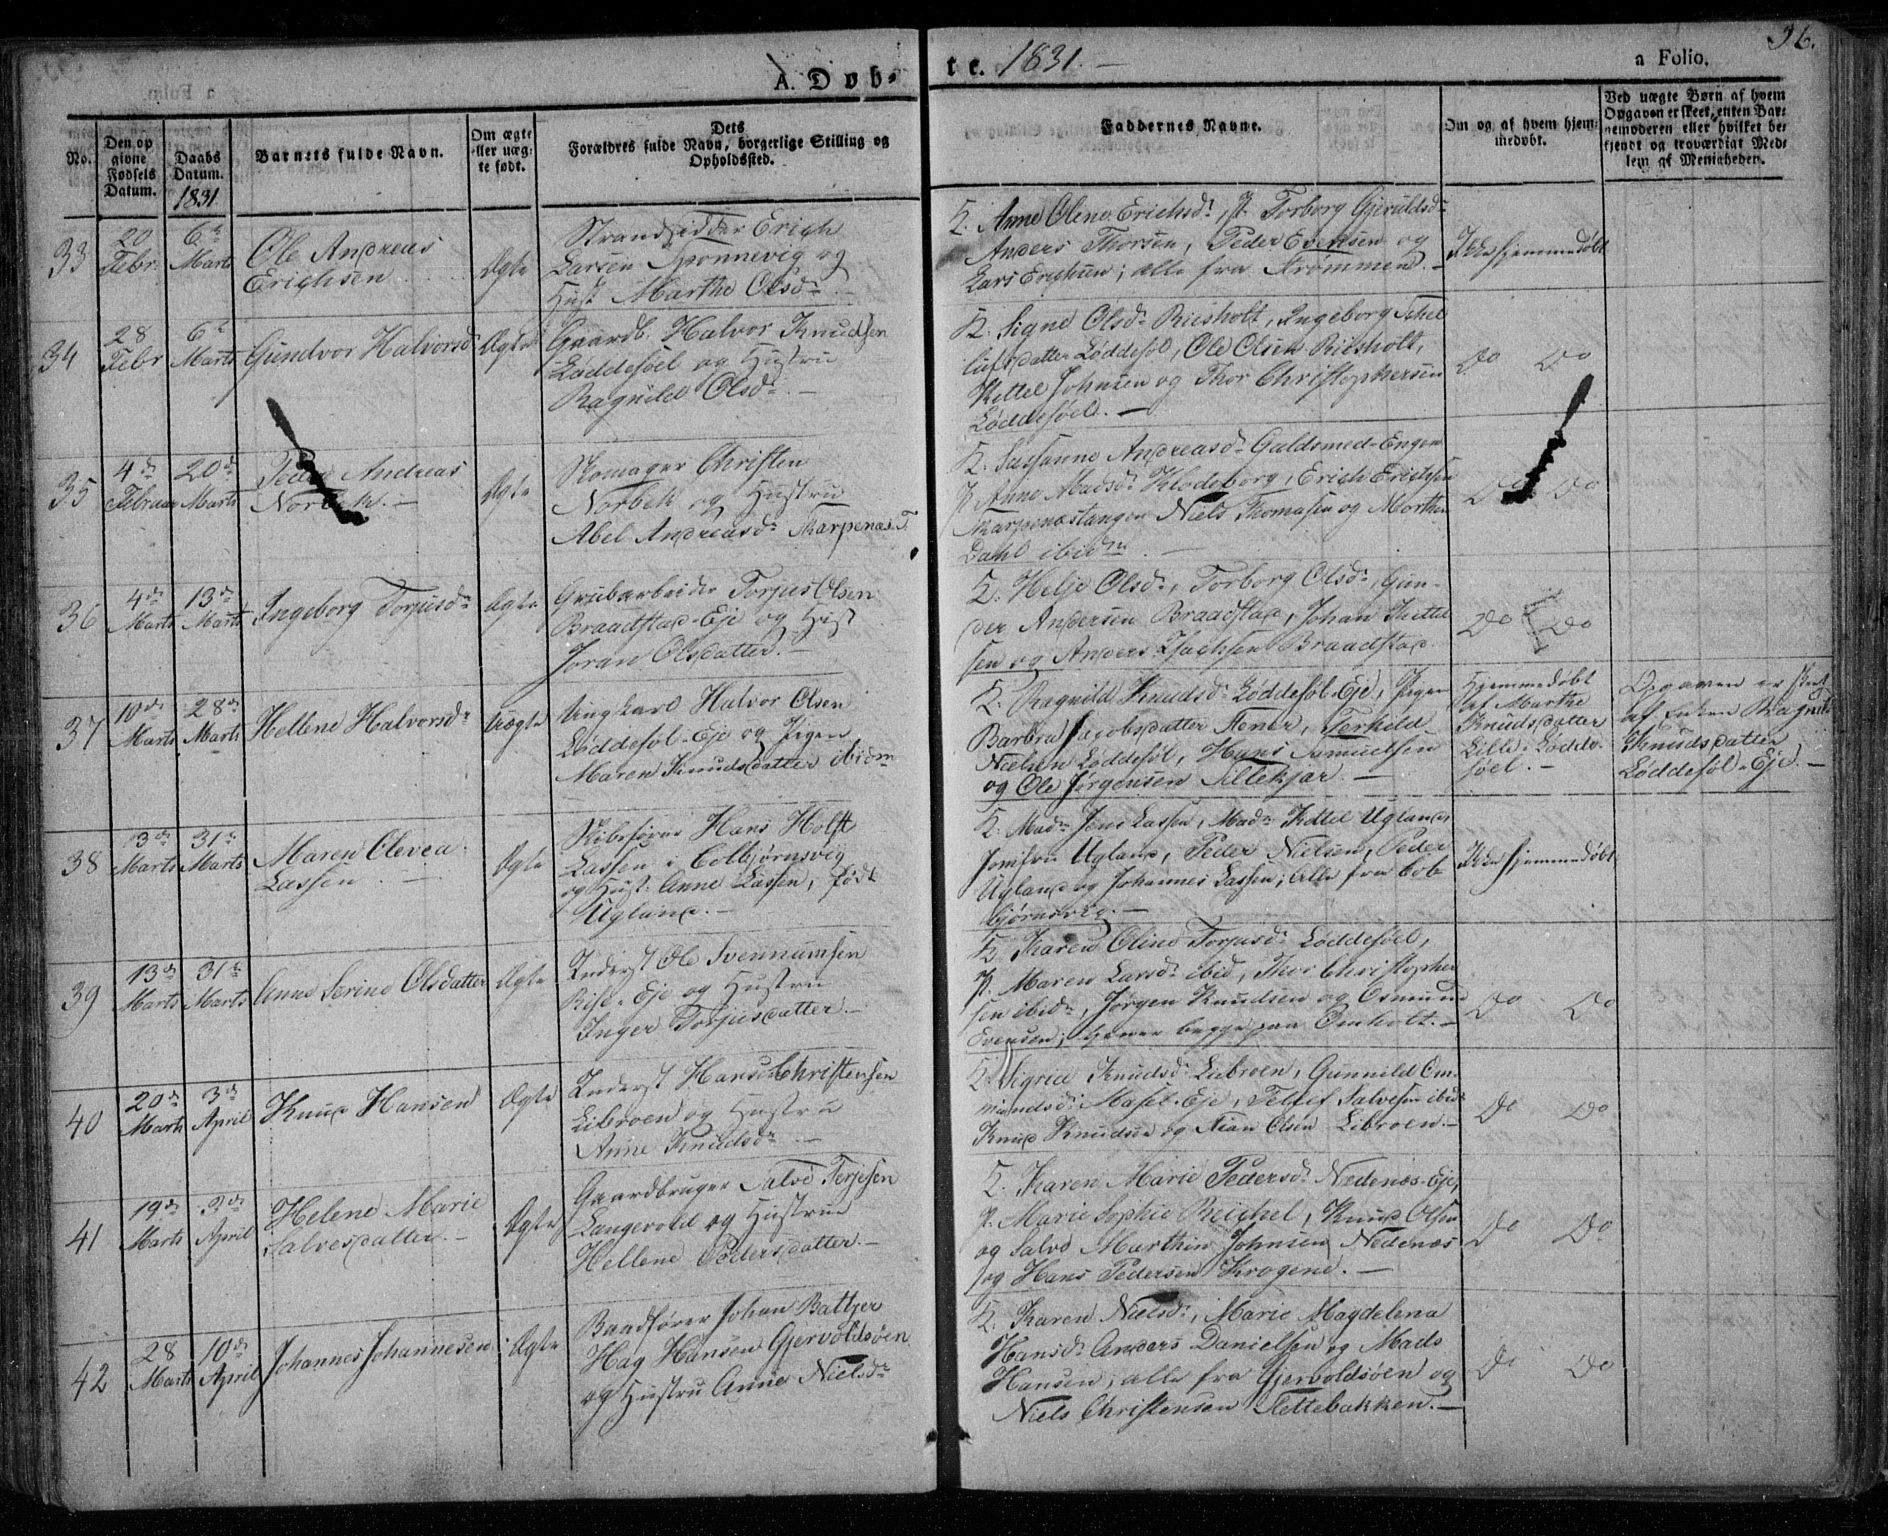 36.
A. Døb-
te. 1831.
a Folio.
No.
Den op
givne
Fødsels
Datum.
Daabs
Datum.
1831
Barnets fulde Navn.
Om ægte
eller uæg-
te født.
Dets
Forældres fulde Navn, borgerlige Stilling og
Opholdssted.
Faddernes Navne.
Om og af hvem hjem-
medøbt.
Ved uægte Børn af hvem
Opgaven er skeet, enten Bar-
nemoderen eller hvilket be-
kjendt og troværdigt Med-
lem af Menigheden.
33
20
Febr.
6te
Marts
Ole Andreas
Erichsen
Ægte
Strandsidder Erich
Larsen Spønnevig og
Hust. Marthe Olsdr. —
K. Anne Olene Erichsdr, P. Torborg Gjeruldsdr
Anders Thorsen, Peder Evensen og
Lars Erichsen; alle fra Strømmen. —
Ikke hjemmedøbt
34
28
Febr
6te
Marts
Gundvor Halvorsdr
Ægte
Gaardb. Halvor Knudsen
Løddesøel og Hustru
Ragnild Olsdr. —
K. Signe Olsdr Riisholt, Ingeborg Tellef
lufsdatter Løddesøl, Ole Olsen Riisholt,
Kettel Johnsen og Thor Christophersen
Løddesøel. —
Do Do
35
4de
Februar
20de
Marts
Peder Andreas
Norbek. —
Ægte
Skomager Christen
Norbek og Hustru
Abel Andreasdr Skarpenæs T.
K. Susanne Andreasdr Guldsmed-Engen
P. Anne Madsdr Klodeborg, Erich Erichsen
Skarpenæstangen Niels Thomasen og Morthen
Dahl ibidm. —
Do Do
36
4de
Marts
13de
Marts
Ingeborg Torjusdr
Ægte
Grubarbeider Torjus Olsen
Braadstad-Eje og Hust
Joran Olsdatter. —
K. Helje Olsdr, Torborg Olsdr, Gun-
der Andersen Braadstad, Johan Kittel
sen og Anders Isachsen Braadstad.
Do Do
37
10de
Marts
28de
Marts
Hellene Halvorsdr
Uægte
Ungkarl Halvor Olsen
Løddesøl-Eje og Pigen
Maren Knudsdatter ibidm
K. Ragnild Knudsdr Løddesøl-Eje, Pigen
Barbra Jacobsdatter Stener, Torkild
Nielsen Løddesøl, Hans Samuelsen
og Ole Jørgensen Lillekjær. —
Hjemmedøbt
af Marthe
Knudsdatter
Lille-Lødde-
søel. —
Opgaven er skeet
af Enken Ragnild
Knudsdatter
Løddesøl-Eje. —
38
3de
Marts
31te
Marts
Maren Olevea
Lassen. —
Ægte
Skibsfører Hans Holst
Lassen i Colbjørnsvig
og Hust. Anne Lassen, født
Ugland. —
K. Madm Jens Lassen, Madm Kittel Ugland,
Jomfru Ugland, Peder Nielsen, Peder
Ugland og Johannes Lassen; alle fra Col-
bjørnsvig. —
Ikke hjemmedøbt
39
13de
Marts
31te
Marts
Anne Serine Olsdatter
Ægte
Inderst Ole Svennumsen
Rise-Eje og Hustru
Inger Torjusdatter. —
K. Karen Oline Torjusdr Løddesøel,
P. Maren Larsdr ibid, Thor Christopher
sen ibidm, Jørgen Knudsen og Osmund
Svensen; begge paa Omholt. —
Do Do
40
20de
Marts
3de
April
Knud Hansen
Ægte
Inderst Hans Christensen
Libroen og Hustru
Anne Knudsdr. —
K. Sigrid Knudsdr Libroen, Gunnild Os-
mundsdr Aasel-Eje, Tellef Salvesen ibidm
Knud Knudsen og Stian Olsen Libroen. —
Do Do
41
19de
Marts
3de
April
Helene Marie
Salvesdatter. —
Ægte
Gaardbruger Salve Terjesen
Langevold og Hustru
Hellene Pedersdatter. —
K. Karen Marie Pedersdr Nedenæs-Eje,
P. Marie Sophie Reichel, Knud Olsen
og Salve Marthin Johnsen Nedenæs
og Hans Pedersen Krogene. —
Do Do
42
28
Marts
10de
April
Johannes Johannesen
Ægte
Baadfører Johan Battjer
Høg Hansen Gjervoldsøen
og Hustru Anne Nielsdr
K. Karen Nielsdr, Marie Magdelena
Hansdr Anders Danielsen og Mads
Hansen, alle fra Gjervoldsøen og
Niels Christensen Slettebakken. —
Do Do